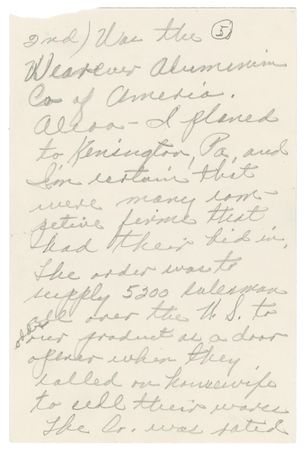 2nd) Was the (5)
Wearever Aluminim
Co of Ameria.
Alcoa - I planed
to Kensington, Pa, and
I'm certain that
were many com-
petive firms that
had their bid in.
The order was to
supply 5200 salesman
all over the U.S. to
our product as a door
opener when they
called on housewife
to sell their wares
The Co. was rated